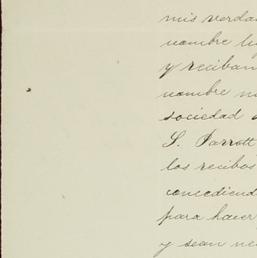 mis verda
nombre
y reciban
nombre
sociedad
S. Parrott
los recibos
concediend
para hacer
y sean ne